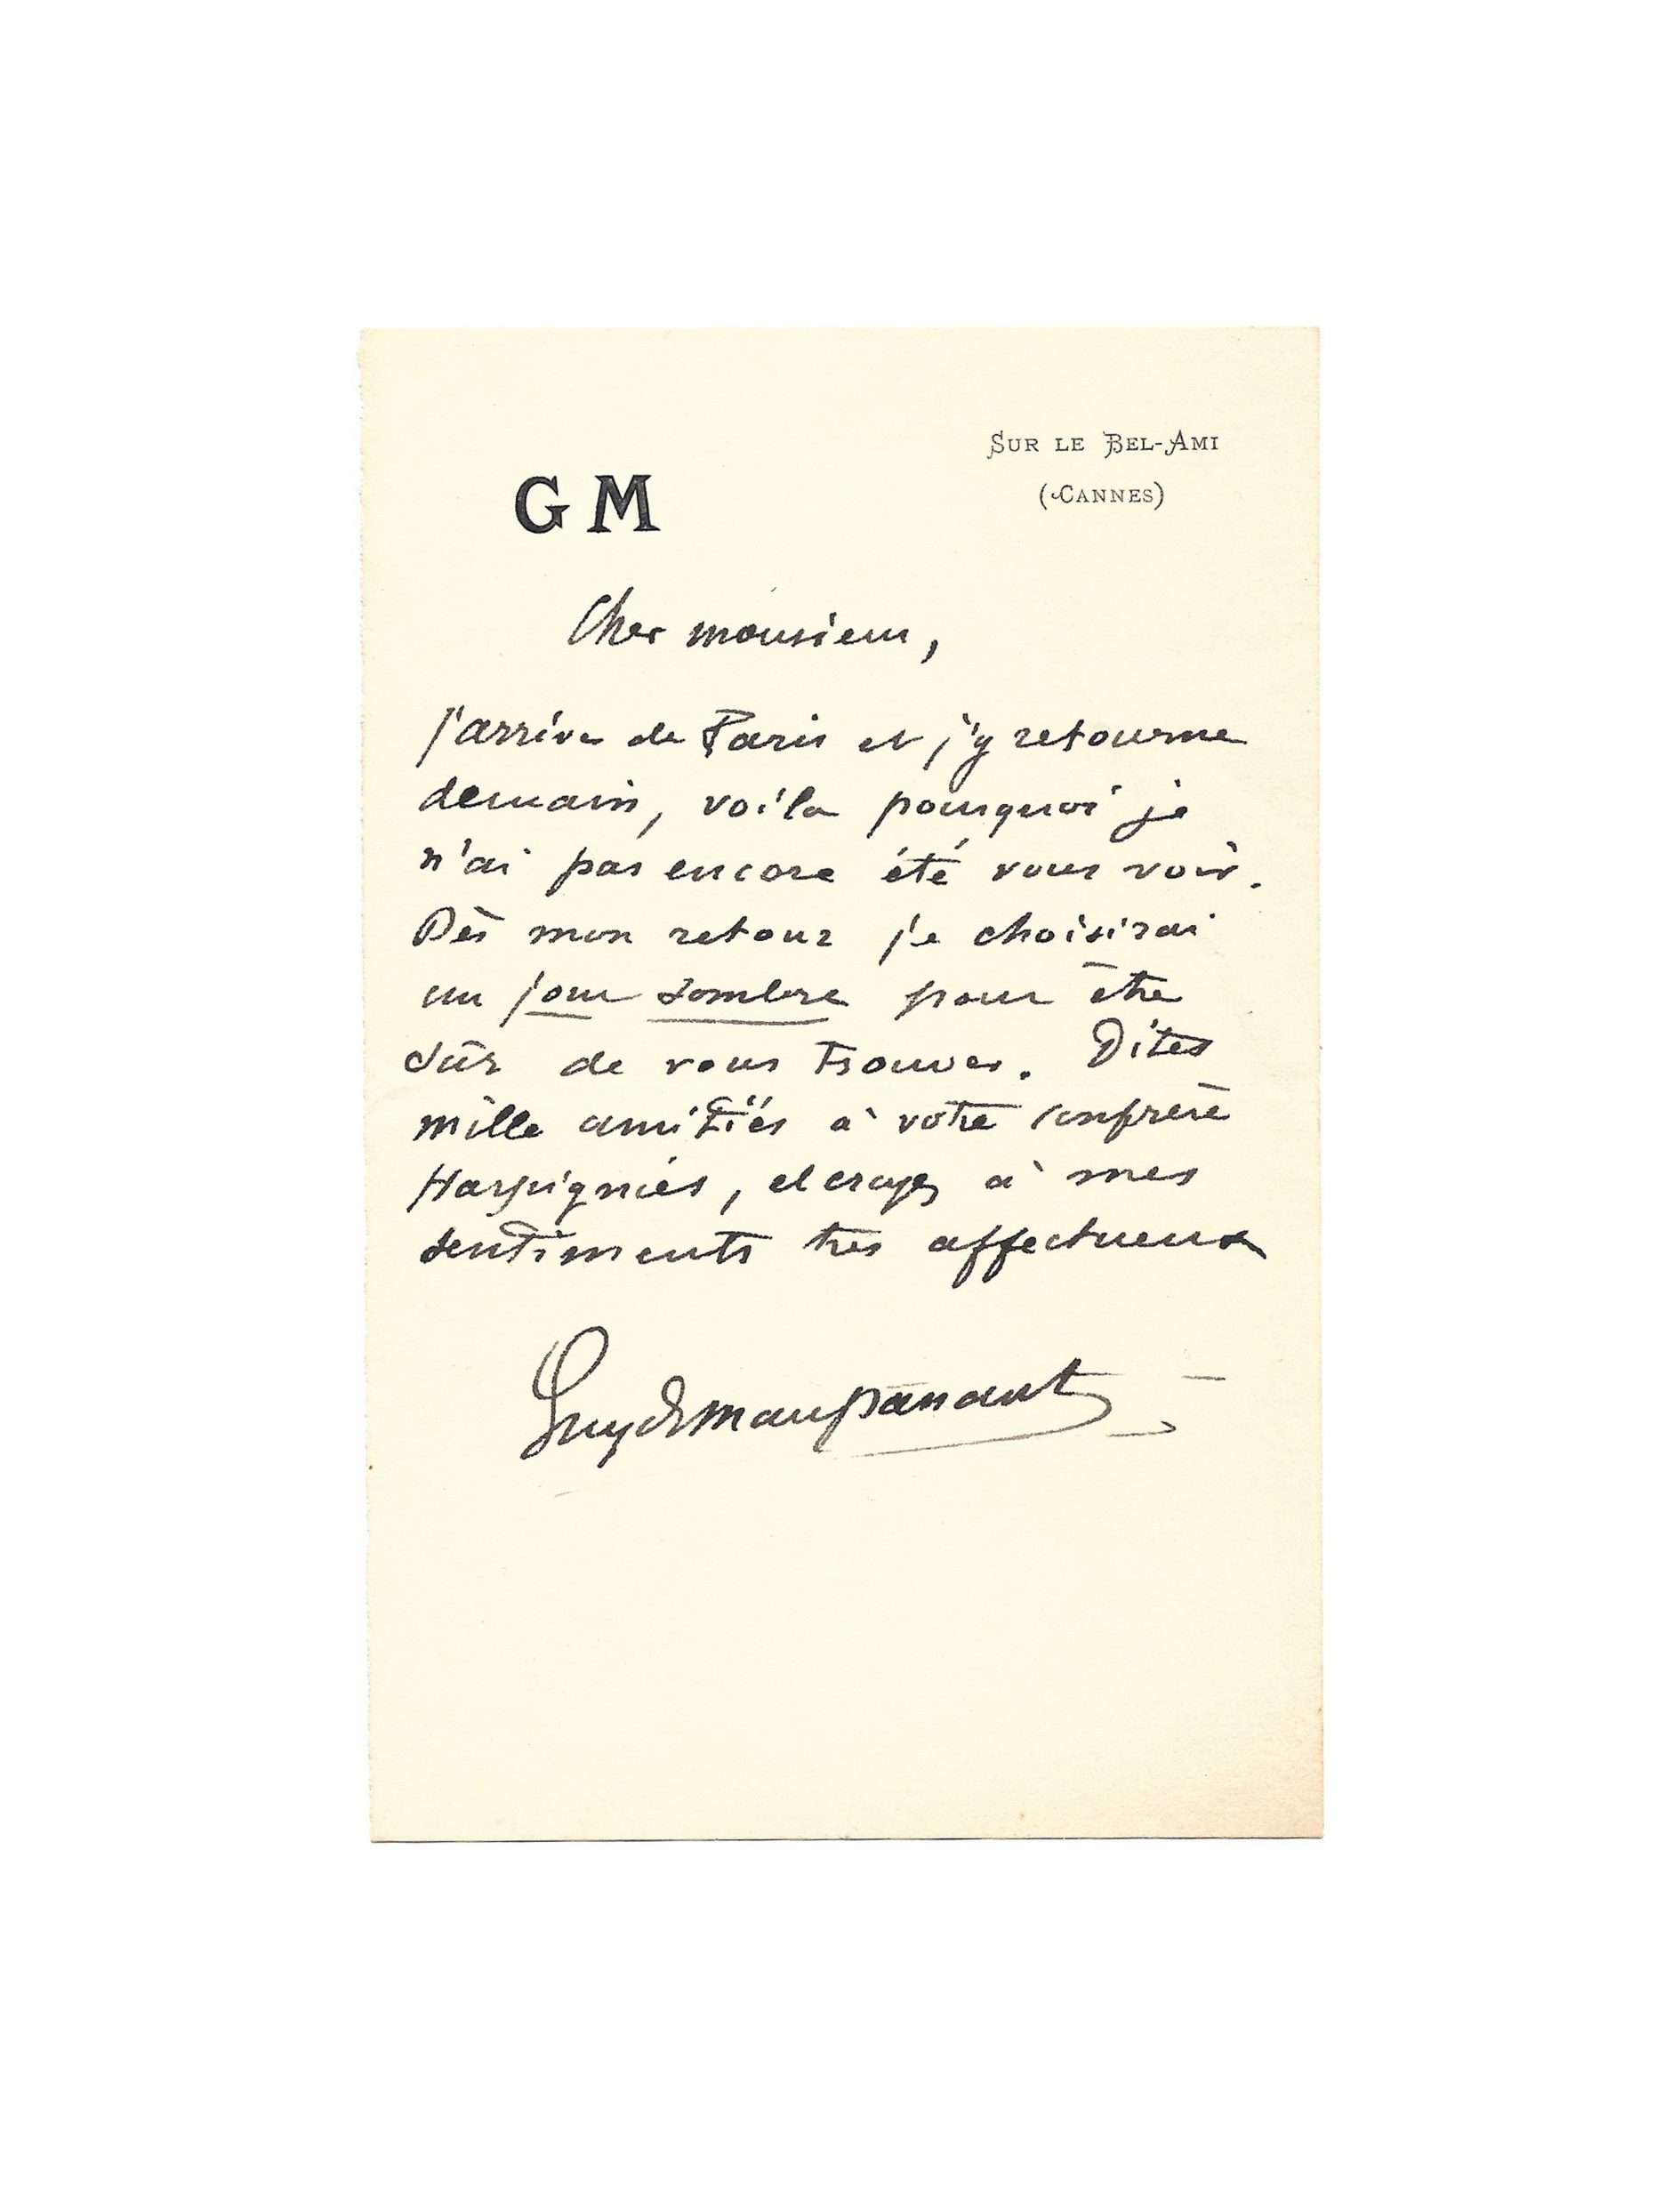 SUR LE BEL-AMI
(CANNES)
G M
Cher monsieur,
j'arrive de Paris et j'y retourne
demain, voila pourquoi je
n'ai pas encore été vous voir.
Dès mon retour je choisirai
un jour sombre pour être
sûr de vous trouver. Dites
mille amitiés à votre confrère
Harpigniés, et croyez à mes
sentiments très affectueux
Guy de Maupassant